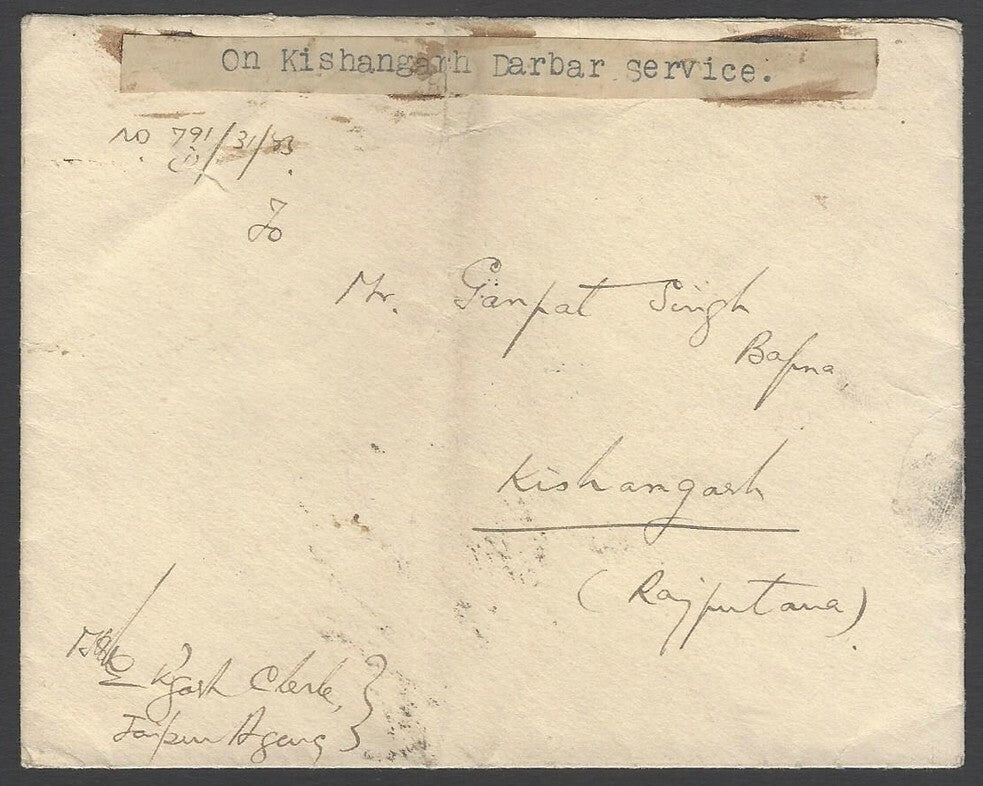 On Kishangarh Darbar Service.
No 791/31/43
(1)
To
Mr. Ganpat Singh
Bapna,
Kishangarh
(Rajputana)
K'garh Clerk,
Jaipur Agency